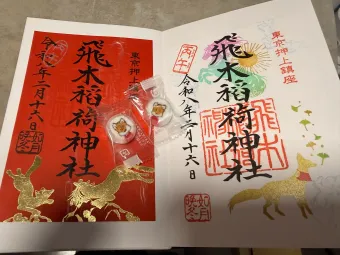 東京押上鎮座
飛木稲荷神社
丙午
令和八年二月十六日
如月
晩冬
東京押上
飛木稲荷神社
令和八年二月十六日
如月
晩冬